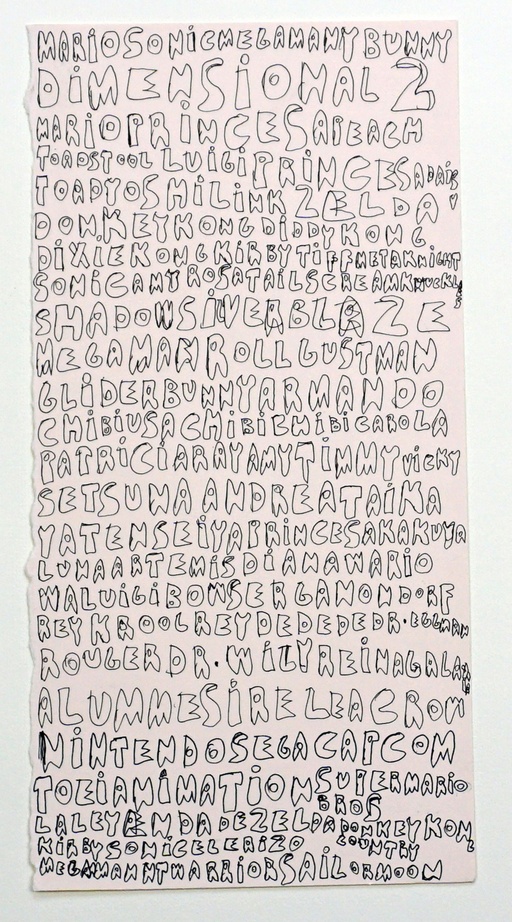 MARIOSONICMEGAMANYBUNNY
DIMENSIONAL 2
MARIOPRINCESAPEACH
TOADSTOOL LUIGIPRINCESADAISY
TOADYOSHILINK ZELDA
DONKEYKONGDIDDYKONG
DIXIEKONGKIRBYTIFFMETAKNIGHT
SONICAMYROSATAILSCREAMKNUCKLES
SHADOWSILVERBLAZE
MEGAMANROLLGUSTMAN
GLIDERBUNNYARMANDO
CHIBIUSACHIBICHIBICAROLA
PATRICIARAYAMYTIMMYVICKY
SETSUNA ANDREATAIKA
YATENSEIYAPRINCESAKAKUYA
LUNAARTEMISDIANAWARIO
WALUIGIBOWSERGANONDORF
REYKROOLREYDEDEDEDR.EGGMAN
ROUGERDR.WILYREINAGALAXIA
ALUMMESIRELEACROW
NINTENDOSEGACAPCOM
TOEIANIMATIONSUPERMARIO
BROS
LALEYENDADEZELDADONKEYKONG
COUNTRY
KIRBYSONICELERIZO
MEGAMANNTWARRIORSAILORMOON